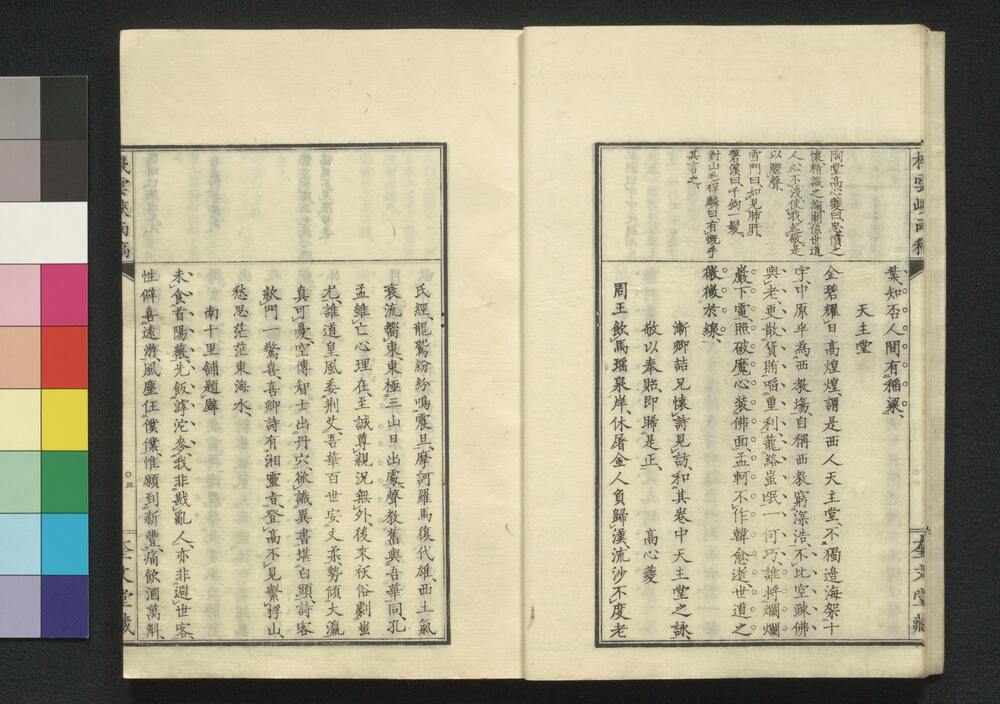 棧雲峽雨稿
陶堂高心夔曰忠憤之
懷精識之論關係世道
人心不淺使我起敬是
以繼聲
雪門曰如見肺肝
碧溪曰千鈞一髮
對山毛祥麟曰有慨乎
其言之
葉知否人間有稻粱
天主堂
金碧耀日高煌煌謂是西人天主堂不獨邊海架十
字中原半為西教塲自稱西教窮深浩不比空疎佛
與老更散貨賄啗重利蘢絡蚩氓一何巧誰將爛爛
巖下電照破魔心裝佛面孟軻不作韓愈逝世道之
微微於線
漸卿詰兄懷詩見訪和其卷中天主堂之詠
敬以奉貽即睎是正 高心夔
周王飲馬瑤泉岸休屠金人負歸漢流沙不度老
奎文堂藏
氏經龍鷲紛紛鳴震旦摩訶羅馬復代雄西土氣
衰流嚮東東極三山日出處聲教舊與吾華同孔
孟雖亡心理在至誠尊親況無外後來祅俗劇蚩
尤誰道皇風委荆艾吾華百世安文柔勢傾大瀛
真可憂空傳智士出丹穴欲識異書堪白頭詩客
款門一驚喜喜卿詩有湘靈音登高不見繫桴山
愁思茫茫東海水
南十里鋪題壁
未食首陽薇先飯滹沱麥我非戡亂人亦非遯世客
性僻喜遠游風塵任僕僕惟願到新豐痛飲酒萬斛
棧雲峽雨稿
○三
奎文堂藏